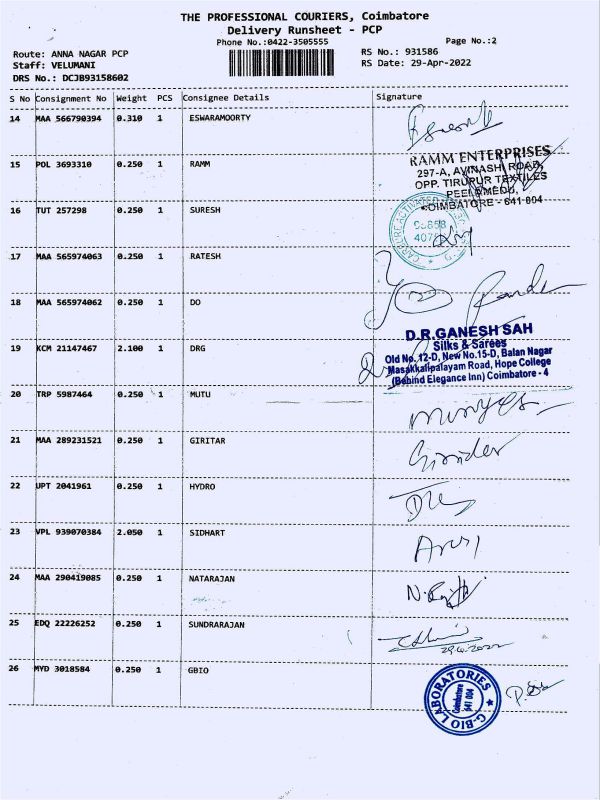 THE PROFESSIONAL COURIERS, Coimbatore
Delivery Runsheet - PCP
Phone No.:0422-3505555
Page No.:2
Route: ANNA NAGAR PCP
RS No.: 931586
Staff: VELUMANI
RS Date: 29-Apr-2022
DRS No.: DCJB93158602
S No Consignment No Weight PCS Consignee Details Signature
14 MAA 566790394 0.310 1 ESWARAMOORTY
15 POL 3693310 0.250 1 RAMM
RAMM ENTERPRISES
297-A, AVINASHI ROAD,
OPP. TIRUPUR TEXTILES
PEELAMEDU,
COIMBATORE - 641 004
16 TUT 257298 0.250 1 SURESH
17 MAA 565974063 0.250 1 RATESH
18 MAA 565974062 0.250 1 DO
D.R.GANESH SAH
Silks & Sarees
19 KCM 21147467 2.100 1 DRG
Old No. 12-D, New No.15-D, Balan Nagar
Masakkalipalayam Road, Hope College
(Behind Elegance Inn) Coimbatore - 4
20 TRP 5987464 0.250 1 MUTU
21 MAA 289231521 0.250 1 GIRITAR
22 UPT 2041961 0.250 1 HYDRO
23 VPL 939070384 2.050 1 SIDHART
24 MAA 290419085 0.250 1 NATARAJAN
25 EDQ 22226252 0.250 1 SUNDRARAJAN
26 MYD 3018584 0.250 1 GBIO
G-BIO LABORATORIES
Coimbatore
641 004